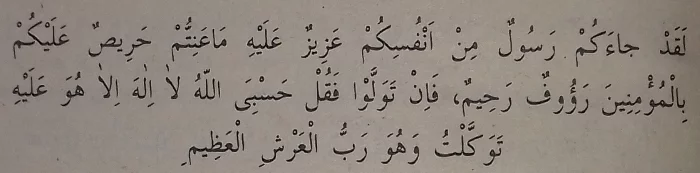 لَقَدْ جاءَكُمْ رَسُولٌ مِنْ اَنْفُسِكُمْ عَزِيزٌ عَلَيْهِ مَاعَنِتُّمْ حَرِيصٌ عَلَيْكُمْ
بِالْمُؤْمِنِينَ رَؤُوفٌ رَحِيمٌ، فَاِنْ تَوَلَّوْا فَقُلْ حَسْبِىَ اللّهُ لاٰ اِلٰهَ اِلاٰ هُوَ عَلَيْهِ
تَوَكَّلْتُ وَهُوَ رَبُّ الْعَرْشِ الْعَظِيمِ